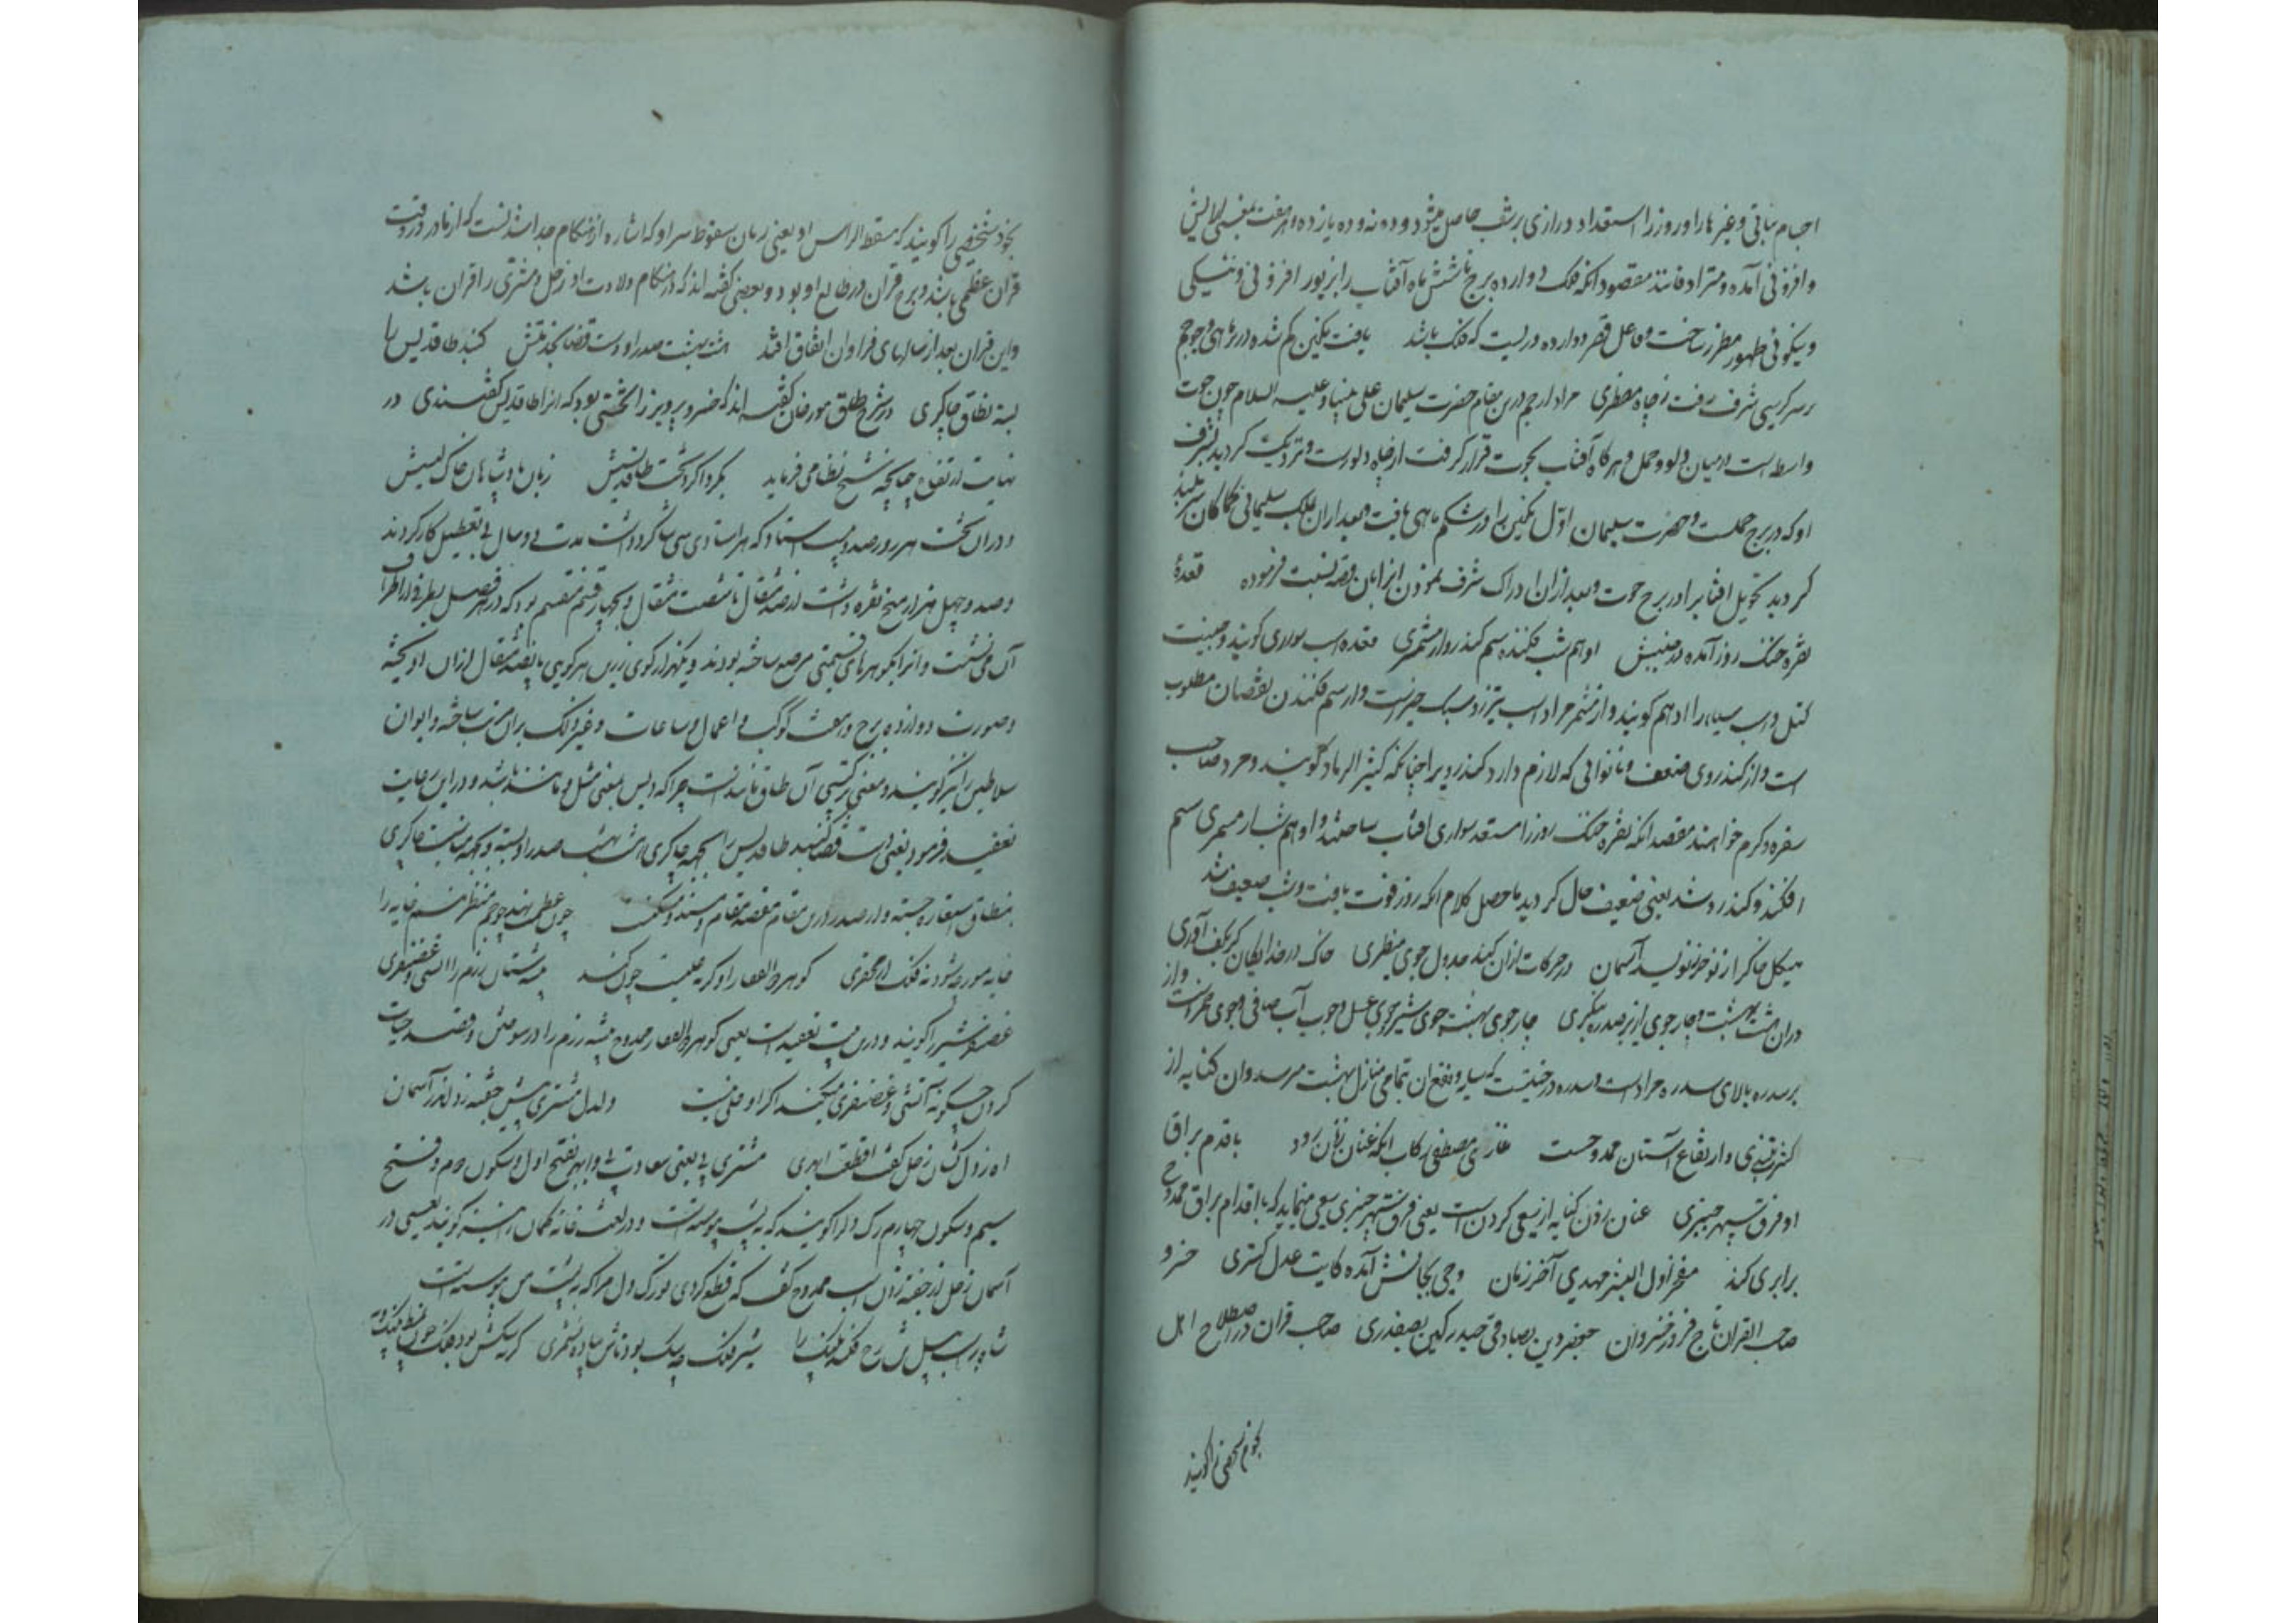 اجسام نباتی و غیرها را و روز را استعداد درازی بر شب حاصل میشود و ده نه و ده یازده از هفت بمعنی لایش
و افزونی آمده و مترادفانند مقصود انکه فلک دوازده برج تا شش ماه آفتاب را بزیور افزونی و نیکی
و نیکوئی ظهور مطرز ساخت و فاعل قصر دوازده دریست که فلک باشد یافت نکین کم شده در بر ماهی چو جم
بر سر کرسی شرف رفت ز چاه مضطری مراد از جم درین مقام حضرت سلیمان علی نبینا و علیه السلام چون حوت
واسطه است درمیان دلو و حمل و هرکاه آفتاب بحوت قرار کرفت از چاه دلو رست و نزدیک کردید بشرف
او که در برج حملست و حضرت سلیمان اول نکین را در شکم ماهی یافت و بعد از آن بملک سلیمانی کماکان سربلند
کردید تحویل افتاب را در برج حوت و بعد از ان ادراک شرف نمودن از این قصه نسبت فرموده قعدهٔ
نقره خنک روز آمده در جنیبش ادهم شب فکنده سم کندرو از مشمری قعده اسب سواری کویند و جنیبت
کتل و اسب سیاه را ادهم کویند و از مشمر مراد اسب تیزرو سبک خیزست و از سم فکندن نقصان مطلوب
است و از کندروی ضعف و ناتوانی که لازم دارد کندرویرا چنانکه کثیر الرماد کویند و مرد صاحب
سفره و کرم خواهند مقصد انکه نقره خنک روز را مستعد سواری افتاب ساختند و ادهم شب از مشمری سم
افکند و کندرو شد یعنی ضعیف حال کردید ماحصل کلام انکه روز قوت یافت و شب ضعیف شد
هیکل خاک را ز نو حرز نویسد آسمان در حرکات از ان کند جدول جوی منظری خاک در خدایکان کر بکف آوری
دران هشت بهشت و چار جوی از بر سدره بنکری چار جوی بهشت جوی شیر و جوی عسل و جوب آب صافی و جوی خمر است و از
بر سدره بالای سدره مراد است و سدره درختیست که سایه و نفع ان بتمامی منازل بهشت میرسد و ان کنایه از
کثرت و ارتفاع آستان ممدوحست غازی مصطفی رکاب انکه عنان زنان رود با قدم براق
او فرق سپهر چنبری عنان زدن کنایه از سعی کردن است یعنی فرق سپهر چنبری سعی مینماید که با اقدام براق ممدوح
برابری کند مفخر اول البشر مهدی آخر زمان وحی بجانش آمده کایت عدل کستری خسرو
صاحب القران تاج فروز خسروان جعفر دین بصادقی حیدر کین بصفدری صاحب قران در اصطلاح اهل
نجوم شخصی را کویند
نجوم شخصی را کویند که مسقط الراس او یعنی زمان سقوط سر او که اشاره از هنکام جدا شدنست که از مادر در وقت
قران عظمی باشد و برج قران در طالع او بود و بعضی کفته اند که در هنکام ولادت او زحل و مشتری را قران باشد
و این قران بعد از سالهای فراوان اتفاق افتد هشت بهشت صدر اوست قضا بخدمتش کنبد طاقدیس را
بسته نطاق چاکری در شرح مورخان کفته اند که خسرو پرویز را تختی بود که انرا طاقدیس کفتندی در
نهایت ارتفاع چنانچه شیخ نظامی فرماید بکرداکرد تخت طاقدیسش زبان پادشاهان خاک لیسش
و دران تخت هر روز صد و بیست استاد که هر استادی سی شاکرد داشت مدت دو سال بی تعطیل کار کردند
و صد و چهل هزار میخ نقره داشت از صد مثقال تا شصت مثقال و بچهار قسم منقسم بود که در هر فصل بطرفی از اطراف
آن می نشست و انرا بکوهرهای قیمتی مرصع ساخته بودند و یکهزار کوی زرین هر کویی پانصد مثقال از ان اویخته
و صورت دوازده برج و هفت کوکب و اعمال و ساعات و غیر ذلک بران مرتب ساخته و ایوان
سلاطین را نیز کویند و معنی ترکیبی آن طاق مانند است چرا که دیس بمعنی مثل و مانند باشد و در این رعایت
تعقید فرموده یعنی دست قضا کنبد طاقدیس را بجهة چاکری هشت بهشت صدر او بسته و بجهة مناسبت چاکری
نطاق استعاره جسته و از صدر درین مقام مقصد مقام و مسند چون عظمت نهد چو جم منظر نیم خایه را
خایه مور چه شود نه فلک از محقری کوهر ذوالفقار او کر نه علیست چون کند بیشه ستان رزم را آتشی و غضنفری
غضنفر شیر را کویند و درین بیت تعقید است یعنی کوهر ذوالفقار ممدوح بیشه رزم را در سوختن و قصد حیات
کردن چکونه آتشی و غضنفری میکند اکر او علی نیست دلدل مشتری پیش جفته زد اندر آسمان
اه ز دل کشان زحل کفت قطعت ابهری مشتری پی یعنی سعادت پی و ابهر بفتح اول و سکون دوم و فتح
سیم و سکون چهارم رک دل را کویند که به پشت پیوسته است و در لغت خانه کمان را نیز کویند یعنی در
آسمان زحل از جفته زدن اسب ممدوح کفت که قطع کردی تو رک دل مرا که به پشت من پیوسته است
شاه پرست پیل تن رخ فکند را شیر فلک چه سک بود تاش پیاده نشمری